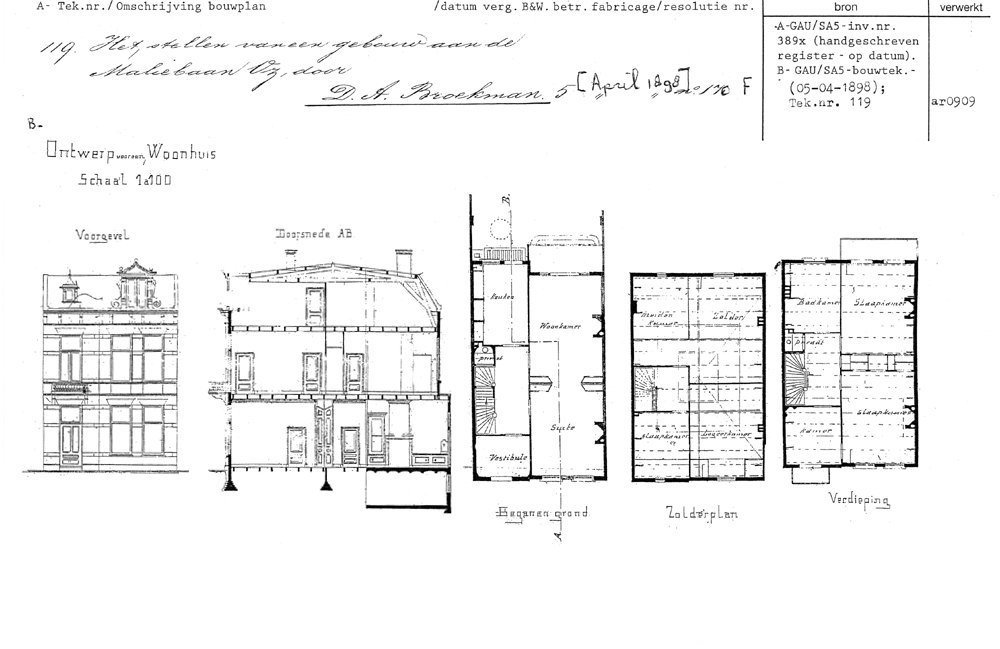 A- Tek.nr./Omschrijving bouwplan /datum verg. B&W. betr. fabricage/resolutie nr.
bron
verwerkt
119. Het stellen van een gebouw aan de
Maliebaan Oz, door
D. A. Broekman. 5 [April 1898] no 170 F
-A-GAU/SA5-inv.nr.
389x (handgeschreven
register - op datum).
B- GAU/SA5-bouwtek.-
(05-04-1898);
Tek.nr. 119
ar0909
B-
Ontwerp voor een Woonhuis
Schaal 1à100
Voorgevel
Doorsnede AB
B
Keuken
Woonkamer
privaat
Suite
Vestibule
Beganen grond
A
Zolder
Slaapkamer
Logeerkamer
Zolderplan
Badkamer
Slaapkamer
privaat
Slaapkamer
Kamer
Verdieping